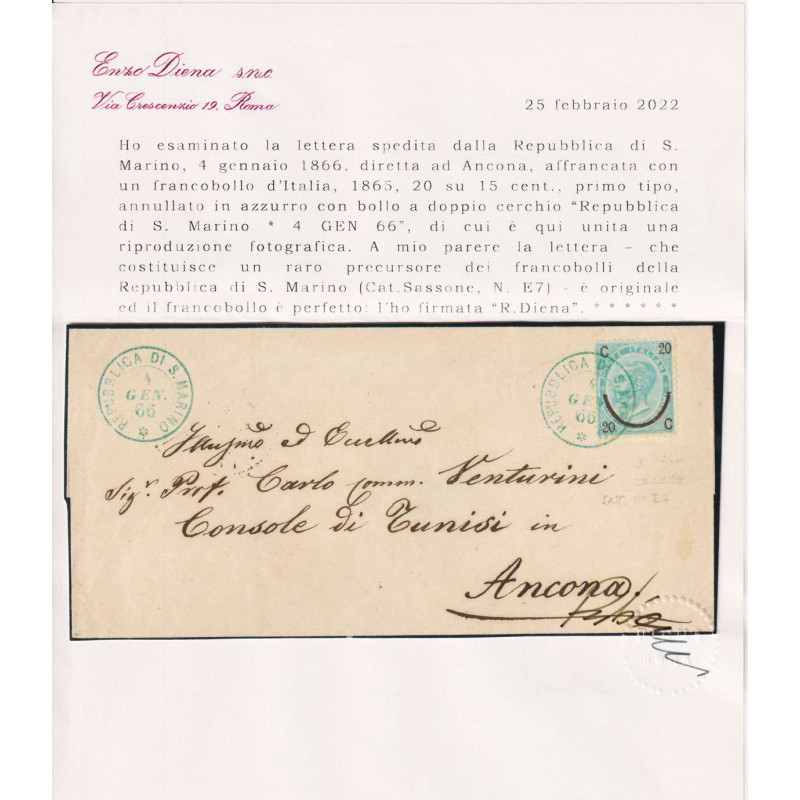 Enzo Diena s.n.c.
Via Crescenzio 19. Roma
25 febbraio 2022
Ho esaminato la lettera spedita dalla Repubblica di S.
Marino, 4 gennaio 1866, diretta ad Ancona, affrancata con
un francobollo d'Italia, 1865, 20 su 15 cent., primo tipo,
annullato in azzurro con bollo a doppio cerchio "Repubblica
di S. Marino * 4 GEN 66", di cui è qui unita una
riproduzione fotografica. A mio parere la lettera – che
costituisce un raro precursore dei francobolli della
Repubblica di S. Marino (Cat.Sassone, N. E7) - è originale
ed il francobollo è perfetto: l'ho firmata "R.Diena". * * * * * *
REPUBBLICA DI S. MARINO
4
GEN.
66
*
REPUBBLICA DI S.
4
GEN
66
*
C 20
20 C
ed
Sigr. Prof. Carlo comm. Venturini
Console di Tunisi in
Ancona.